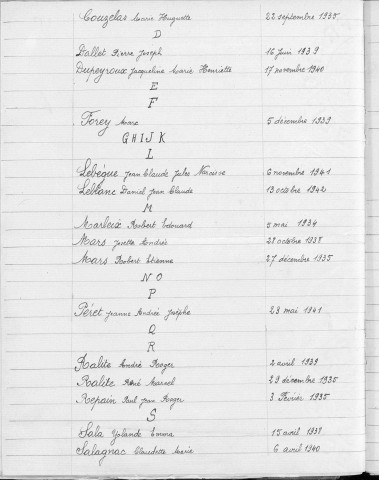 Couzelas Marie Huguette 22 septembre 1935
D
Dallet Pierre Joseph 16 Juin 1939
Dupeyroux Jacqueline Marie Henriette 17 novembre 1940
E
F
Forey Marc 5 décembre 1939
GHIJK
L
Lebègue Jean Claude Jules Narcisse 6 novembre 1941
Leblanc Daniel Jean Claude 13 octobre 1942
M
Marleix Robert Edouard 5 mai 1934
Mars Yvette Andrée 28 octobre 1938
Mars Robert Etienne 27 décembre 1935
NO
P
Péret Jeanne Andrée Josèphe 23 mai 1941
Q
R
Ralite André Roger 2 avril 1939
Ralite René Marcel 29 décembre 1935
Repain Paul Jean Roger 3 Février 1935
S
Sala Yolande Emma 15 avril 1938
Salagnac Claudette Marie 6 avril 1940